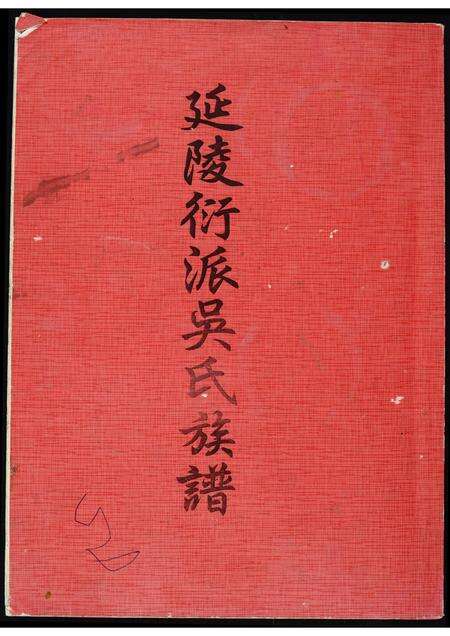 延陵衍派吳氏族譜